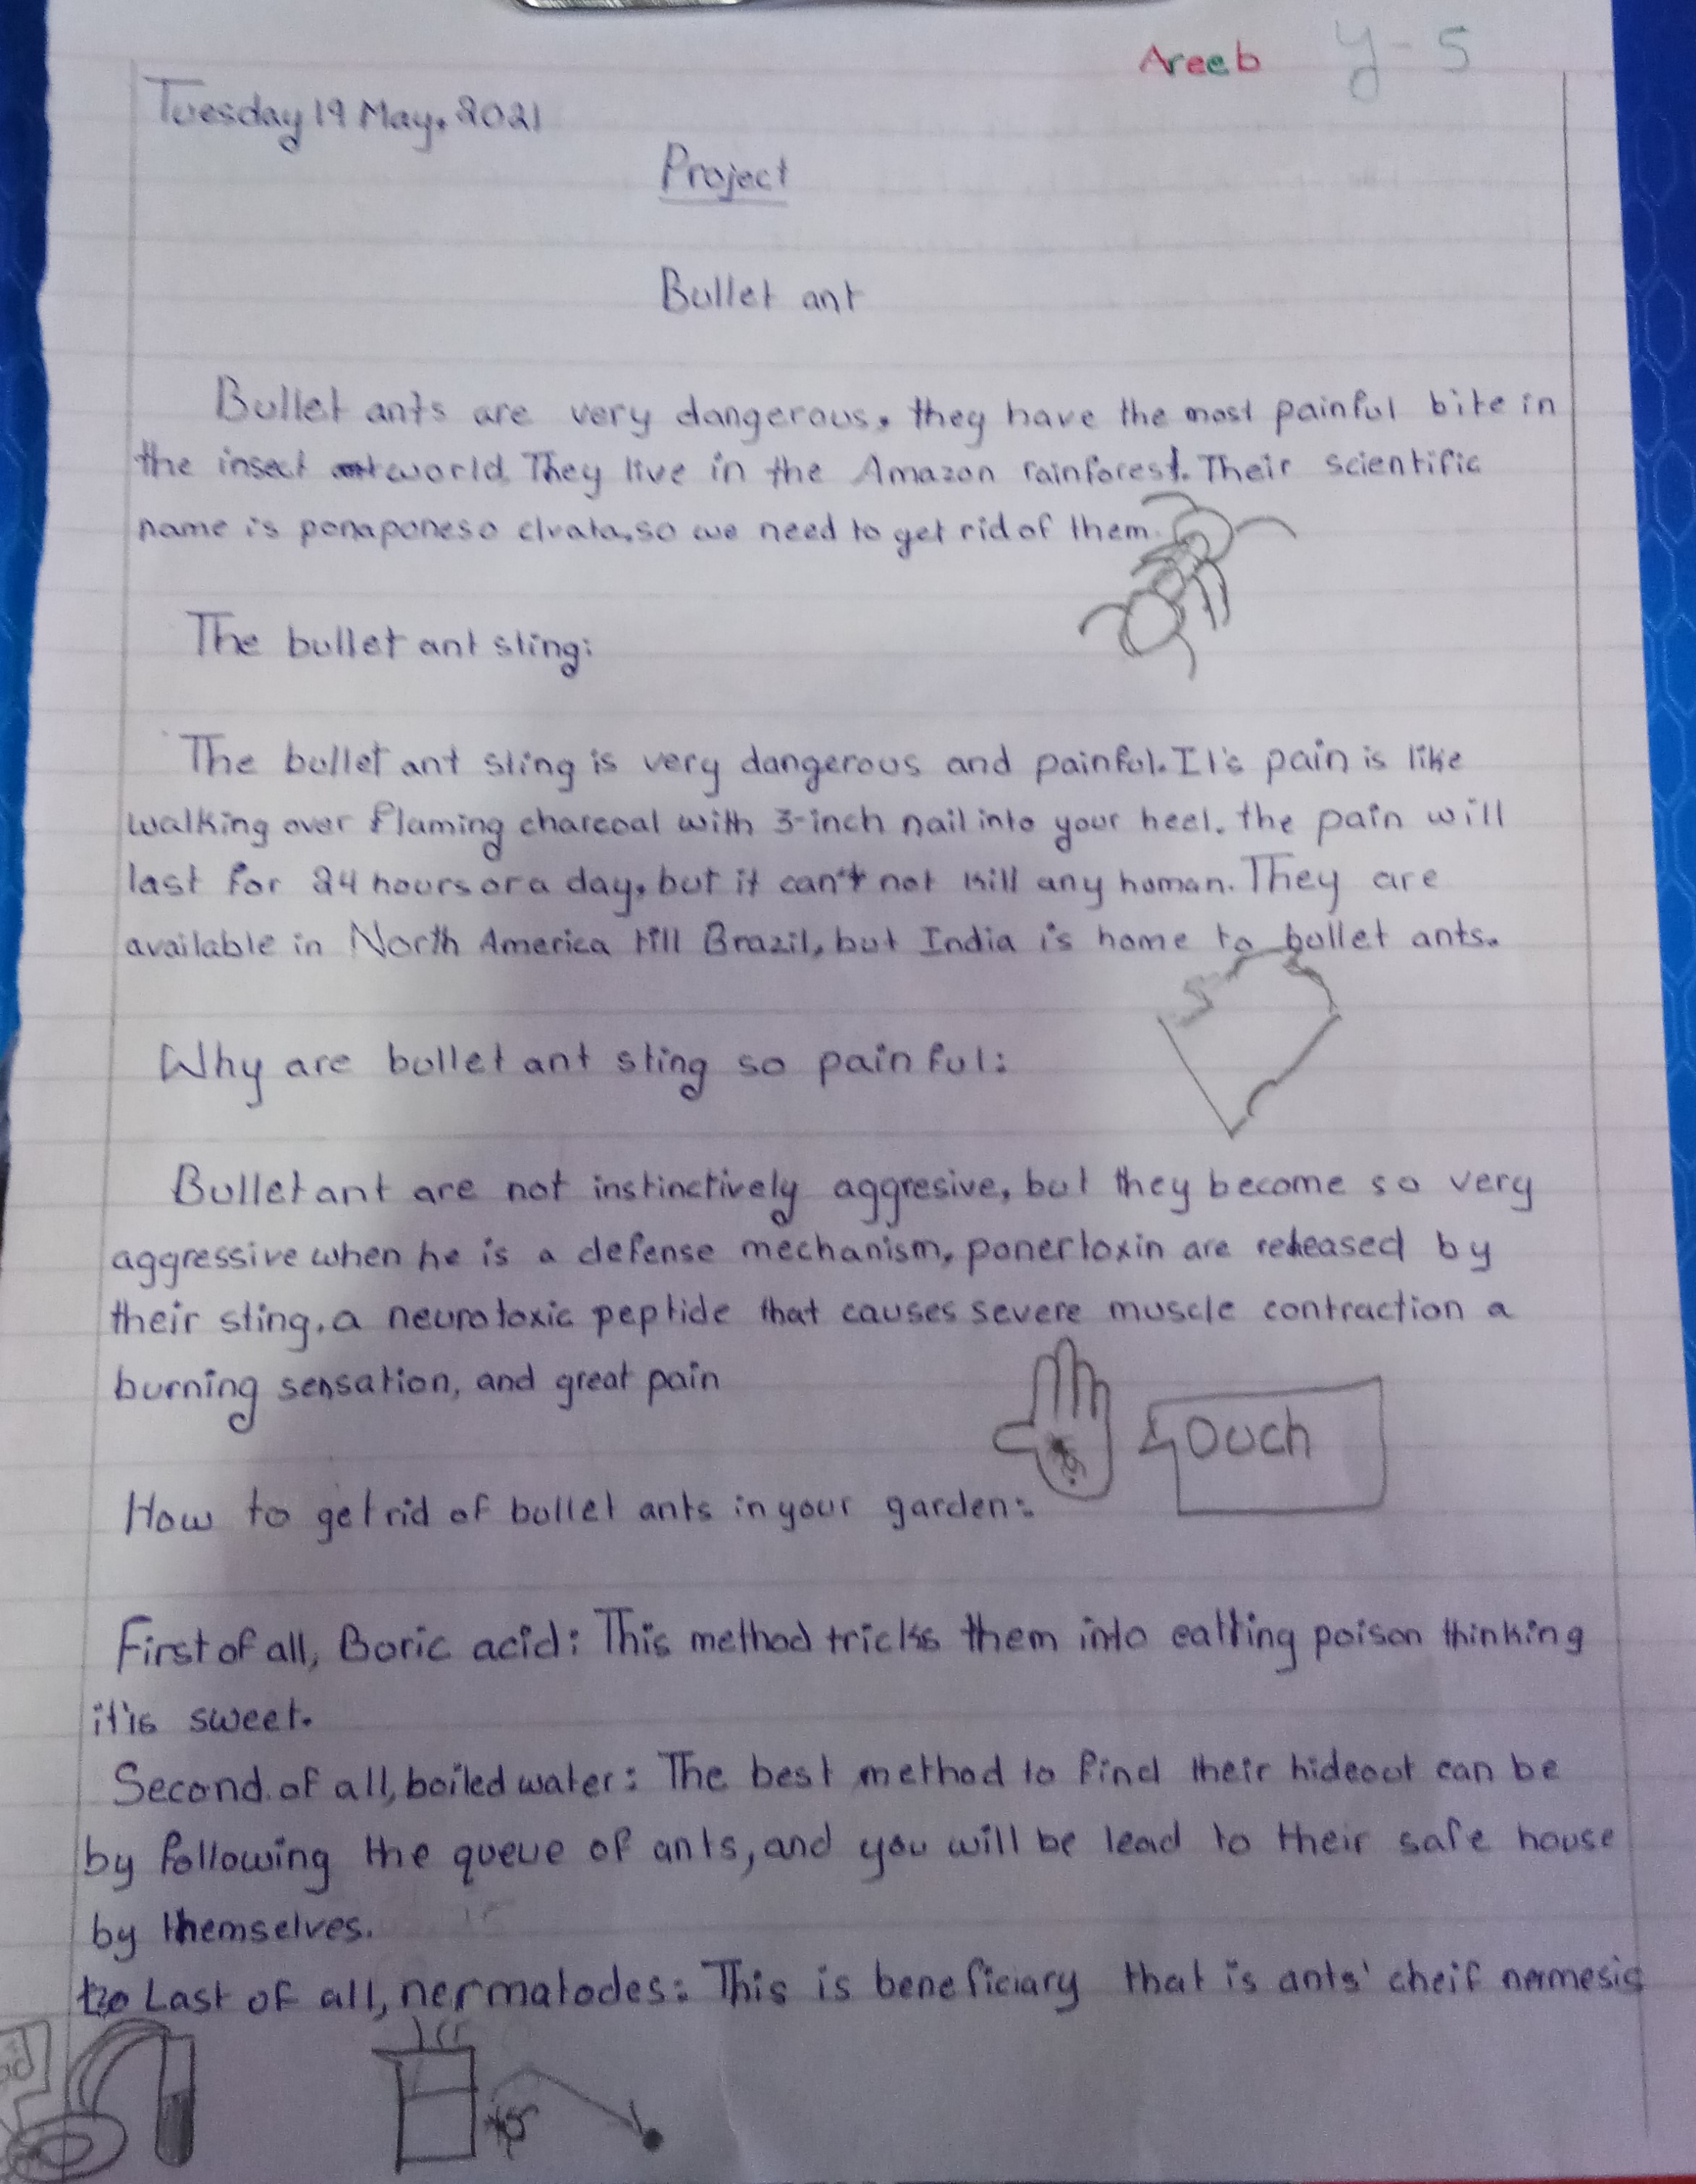 Areeb y-5
Tuesday 19 May, 2021
Project
Bullet ant
Bullet ants are very dangerous, they have the most painful bite in
the insect world. They live in the Amazon rainforest. Their scientific
name is ponaponeso clvata, so we need to get rid of them.
The bullet ant sting:
The bullet ant sting is very dangerous and painful. It's pain is like
walking over flaming charcoal with 3-inch nail into your heel. the pain will
last for 24 hours or a day, but it can't not kill any human. They are
available in North America till Brazil, but India is home to bullet ants.
Why are bullet ant sting so painful:
Bullet ant are not instinctively aggresive, but they become so very
aggressive when he is a defense mechanism, ponertoxin are released by
their sting, a neurotoxic peptide that causes severe muscle contraction a
burning sensation, and great pain
Ouch
How to get rid of bullet ants in your garden:
First of all, Boric acid: This method tricks them into eatting poison thinking
it'is sweet.
Second of all, boiled water: The best method to find their hideout can be
by following the queue of ants, and you will be lead to their safe house
by themselves.
Last of all, nermatodes: This is beneficiary that is ants' cheif nemesis